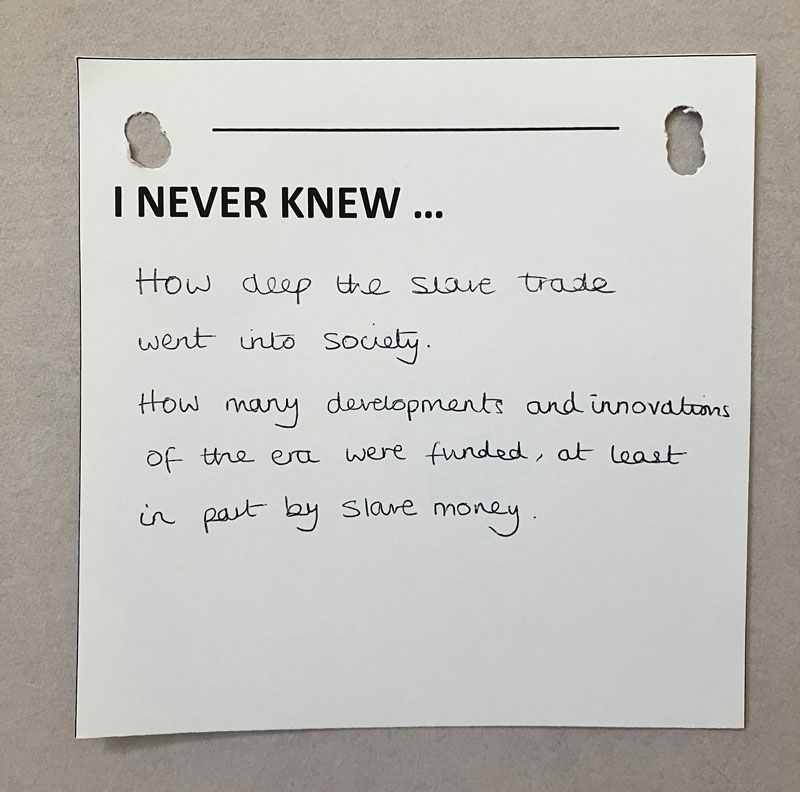 I NEVER KNEW ...
How deep the slave trade
went into society.
How many developments and innovations
of the era were funded, at least
in part by slave money.